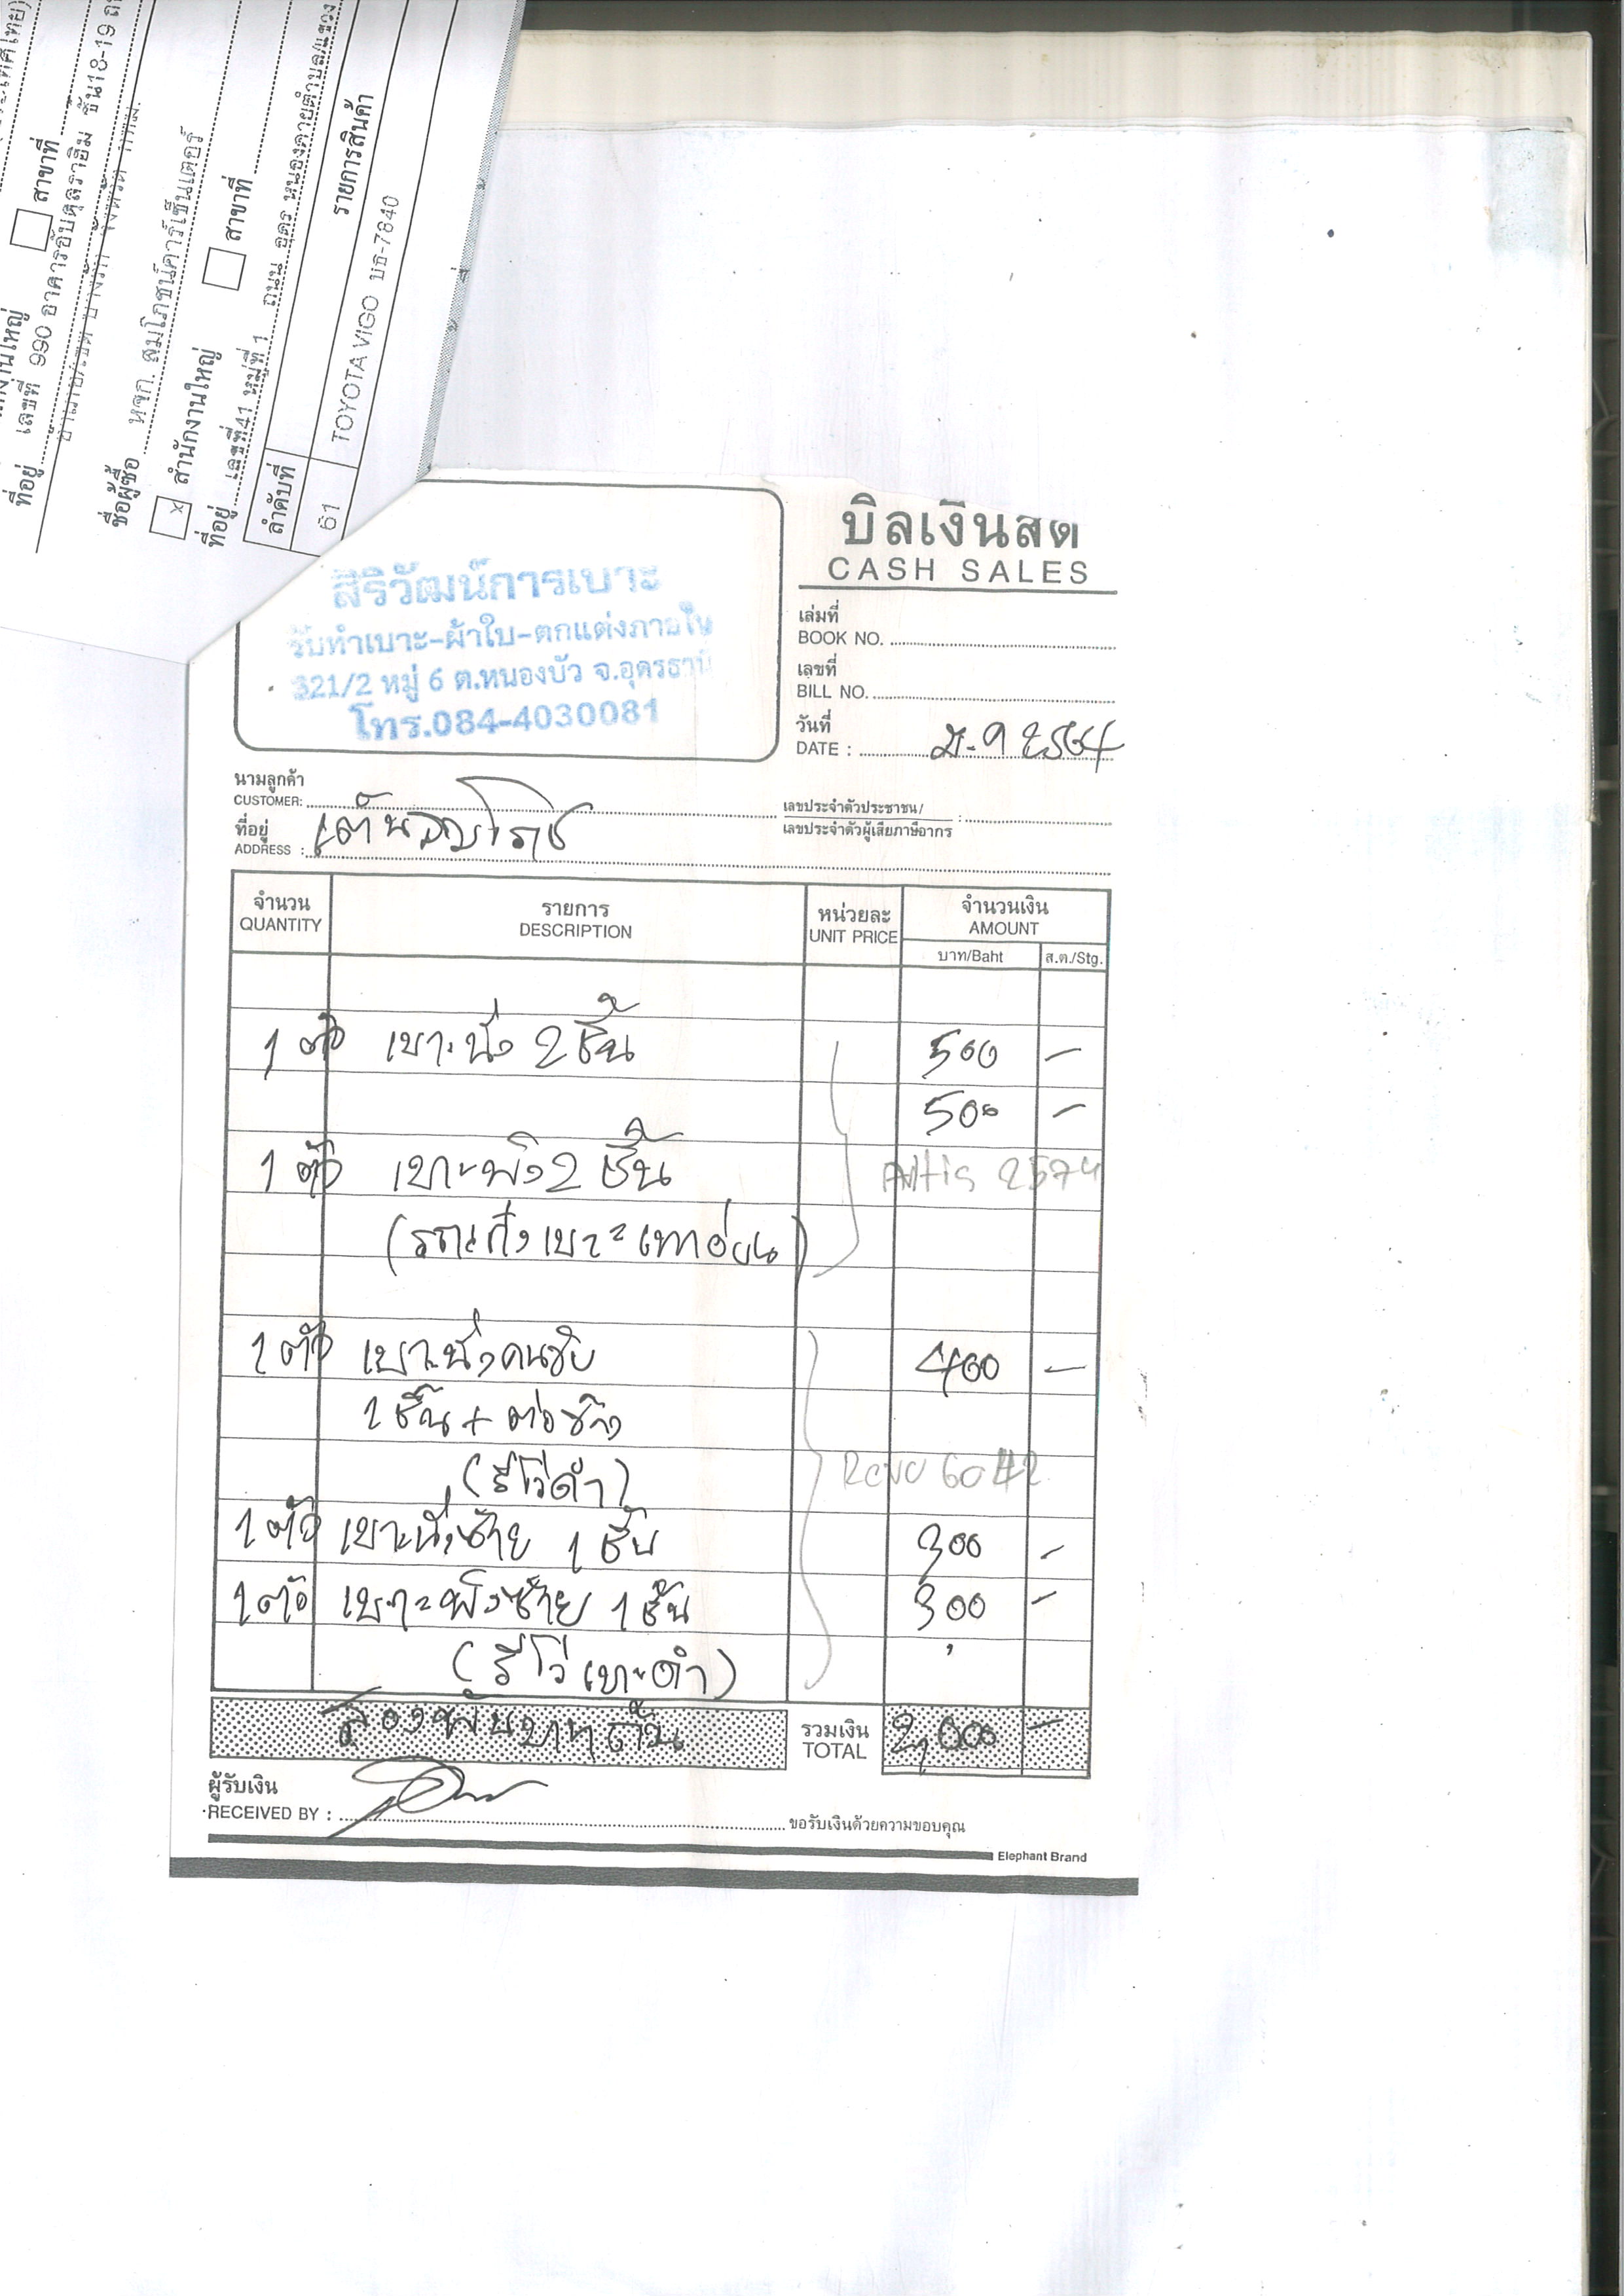 สาขาที่
ที่อยู่ เลขที่ 990 อาคารอับดุลราฮิม ชั้น18-19
ชื่อผู้ซื้อ หจก. สมโภชน์คาร์เซ็นเตอร์
x สำนักงานใหญ่ สาขาที่
ที่อยู่ เลขที่41 หมู่ที่ 1 ถนน อุดร หนองคายตำบล/แขวง
ลำดับที่ รายการสินค้า
61 TOYOTA VIGO บธ-7640
บิลเงินสด
CASH SALES
สิริวัฒน์การเบาะ
รับทำเบาะ-ผ้าใบ-ตกแต่งภายใน
321/2 หมู่ 6 ต.หนองบัว จ.อุดรธานี
โทร.084-4030081
เล่มที่
BOOK NO.
เลขที่
BILL NO.
วันที่
DATE : 2564
นามลูกค้า
CUSTOMER:
เลขประจำตัวประชาชน/
เลขประจำตัวผู้เสียภาษีอากร :
ที่อยู่
ADDRESS :
จำนวน รายการ หน่วยละ จำนวนเงิน
QUANTITY DESCRIPTION UNIT PRICE AMOUNT
บาท/Baht ส.ต./Stg.
1 ตัว เบาะนั่ง 2 ชิ้น 500 -
500 -
1 ตัว เบาะพิง 2 ชิ้น Altis 2574
1 ตัว เบาะนั่งคนขับ 400 -
1 ชิ้น + ต่อข้าง
(รีโว่ดำ) Revo 6042
1 ตัว เบาะนั่งซ้าย 1 ชิ้น 300 -
1 ตัว เบาะพิงซ้าย 1 ชิ้น 300 -
(รีโว่ เบาะดำ)
สองพันบาทถ้วน รวมเงิน 2,000 -
TOTAL
ผู้รับเงิน
RECEIVED BY : ขอรับเงินด้วยความขอบคุณ
Elephant Brand